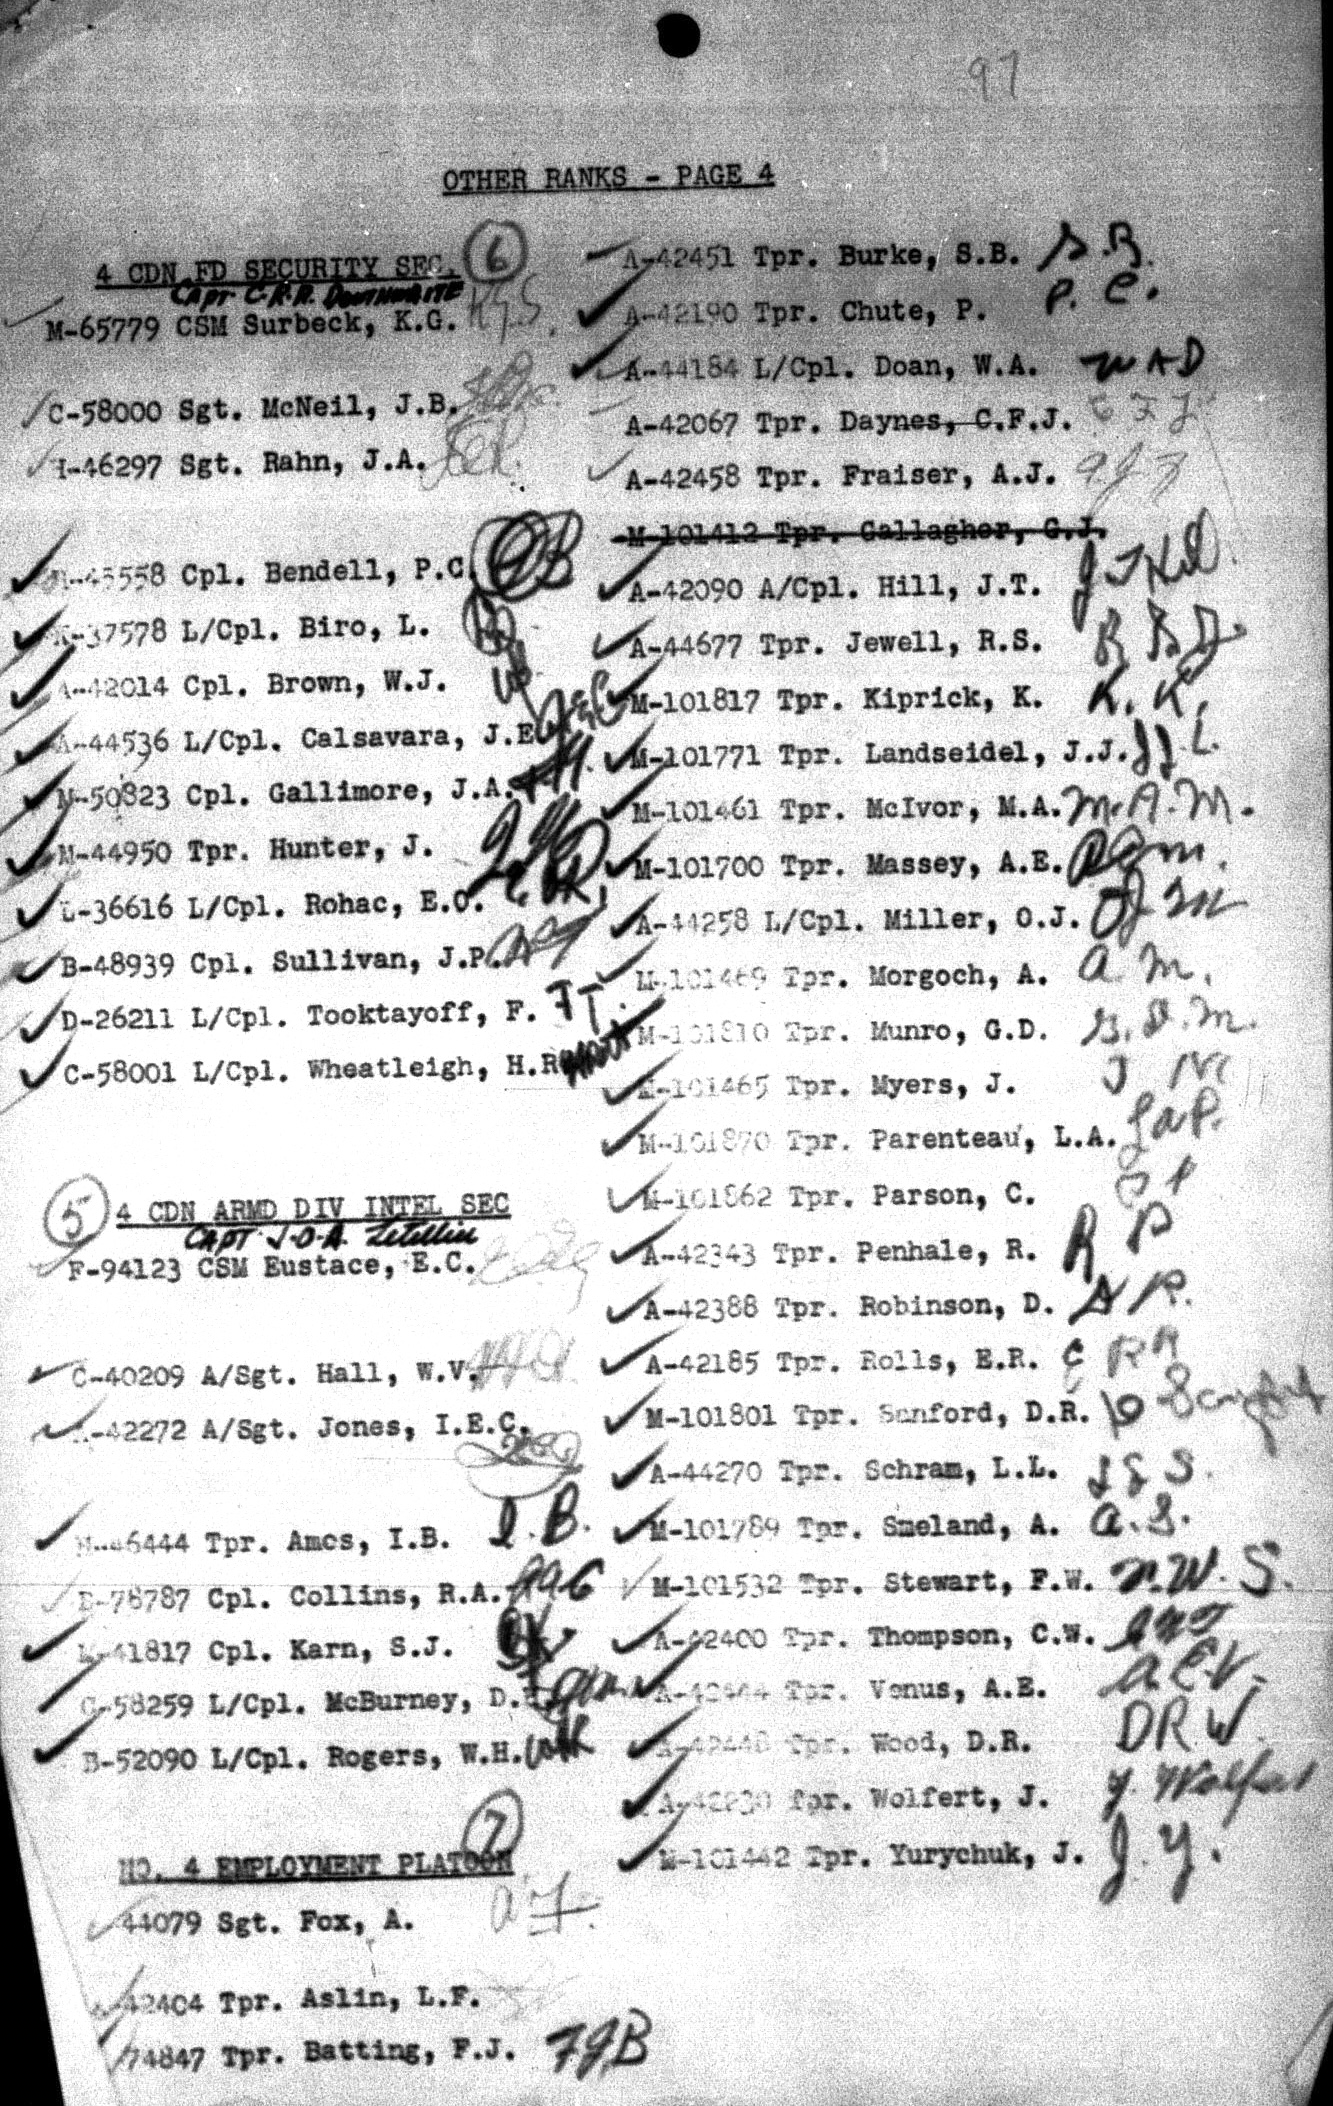 97
OTHER RANKS - PAGE 4
4 CDN FD SECURITY SEC. 6
CAPT C.R.R. DOUTHWAITE
M-65779 CSM Surbeck, K.G. K.G.S.
C-58000 Sgt. McNeil, J.B.
H-46297 Sgt. Rahn, J.A.
45558 Cpl. Bendell, P.C.
K-37578 L/Cpl. Biro, L.
A-42014 Cpl. Brown, W.J.
A-44536 L/Cpl. Calsavara, J.E.
M-50823 Cpl. Gallimore, J.A.
M-44950 Tpr. Hunter, J.
L-36616 L/Cpl. Rohac, E.O.
B-48939 Cpl. Sullivan, J.P.
D-26211 L/Cpl. Tooktayoff, F. F T.
C-58001 L/Cpl. Wheatleigh, H.R.
5 4 CDN ARMD DIV INTEL SEC
CAPT J.O.A. Letellier
F-94123 CSM Eustace, E.C.
C-40209 A/Sgt. Hall, W.V.
-42272 A/Sgt. Jones, I.E.C.
46444 Tpr. Ames, I.B. I.B.
B-78787 Cpl. Collins, R.A. RAC
41817 Cpl. Karn, S.J.
C-58259 L/Cpl. McBurney, D.
B-52090 L/Cpl. Rogers, W.H.
7
NO. 4 EMPLOYMENT PLATOON
44079 Sgt. Fox, A. A F.
42404 Tpr. Aslin, L.F.
74847 Tpr. Batting, F.J. F.J.B
A-42451 Tpr. Burke, S.B. S.B.
A-42190 Tpr. Chute, P. P. C.
A-44184 L/Cpl. Doan, W.A. W A D
A-42067 Tpr. Daynes, C.F.J. C F J
A-42458 Tpr. Fraiser, A.J. A J F
M-101412 Tpr. Gallagher, G.J.
A-42090 A/Cpl. Hill, J.T. J T Hill
A-44677 Tpr. Jewell, R.S. R S J.
M-101817 Tpr. Kiprick, K. K. K.
M-101771 Tpr. Landseidel, J.J. J J. L.
M-101461 Tpr. McIvor, M.A. M.A.M.
M-101700 Tpr. Massey, A.E. A E m.
A-44258 L/Cpl. Miller, O.J. O J M
M-101469 Tpr. Morgoch, A. A M.
M-101810 Tpr. Munro, G.D. G.D.M.
M-101465 Tpr. Myers, J. J M
M-101870 Tpr. Parenteau, L.A. L a P.
M-101862 Tpr. Parson, C. C P
A-42343 Tpr. Penhale, R. R P
A-42388 Tpr. Robinson, D. D R.
A-42185 Tpr. Rolls, E.R. E R R
M-101801 Tpr. Sanford, D.R. D Sanford
A-44270 Tpr. Schram, L.L. L L S.
M-101789 Tpr. Smeland, A. a.S.
M-101532 Tpr. Stewart, F.W. F.W.S.
A-42400 Tpr. Thompson, C.W. CWT
A-42444 Tpr. Venus, A.E. A.E.V.
A-42448 Tpr. Wood, D.R. DRW
A-42230 Tpr. Wolfert, J. J. Wolfert
M-101442 Tpr. Yurychuk, J. J. Y.